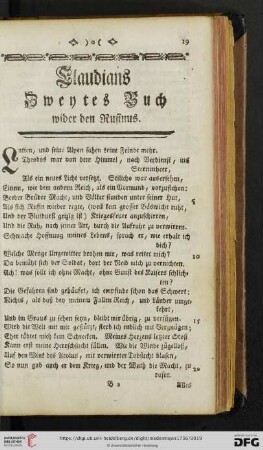 19
Claudians
Zweytes Buch
wider den Rufinus.
und seine Alpen sahen keine Feinde mehr.
Theodos war von dem Himmel, nach Verdienst, ins
Sternenheer,
Als ein neues Licht versetzt. Stilicho war ausersehen,
Einem, wie dem andern Reich, als ein Vormund, vorzustehen;
Beyder Brüder Macht, und Völker stunden unter seiner Hut,
Als sich Rufin wieder regte, (weil kein grosser Bösewicht ruht,
Und der Blutdurst geizig ist) Kriegesfeuer anzuschüren,
Und die Ruh, nach seiner Art, durch die Aufruhr zu verwirren.
Schwache Hoffnung meines Lebens, sprach er, wie erhalt ich
dich?
Welche Menge Ungewitter drohen mir, was rettet mich?
Da bemüht sich der Soldat, dort der Neid mich zu vernichten.
Ach! was soll ich ohne Macht, ohne Gunst des Kaisers schlich-
ten?
Die Gefahren sind gehäufet, ich empfinde schon das Schwert;
Nichts, als daß bey meinem Fallen Reich, und Länder umge-
kehrt,
Und im Graus zu sehen seyn, bleibt mir übrig, zu verfügen.
Wird die Welt mit mir gestürzt, sterb ich endlich mit Vergnügen;
Eher tödtet mich kein Schrecken. Meines Herzens letzter Stoß
Kann erst meine Herrschsucht fällen. Wie die Winde zügellos,
Auf den Wink des Aeolus, mit verwirrter Tobsucht blasen,
So nun gab auch er dem Krieg, und der Wuth die Macht, zu
rasen.
B 2
Alles
5
10
15
20
DFG